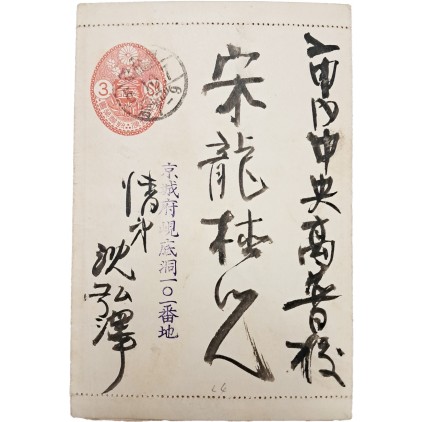 市内中央高普校
宋龍
京城府峴底洞一〇一番地
情弟
沈弘澤
3